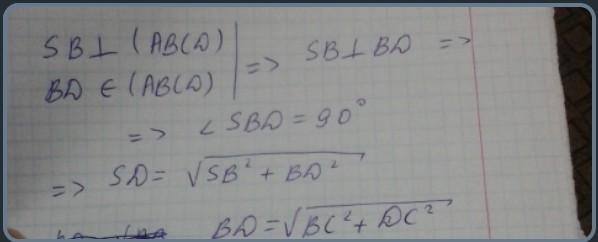 SB ⊥ (ABCD) | => SB ⊥ BD =>
BD ∈ (ABCD)
=> ∠ SBD = 90°
=> SD = √SB² + BD²
BD = √BC² + DC²